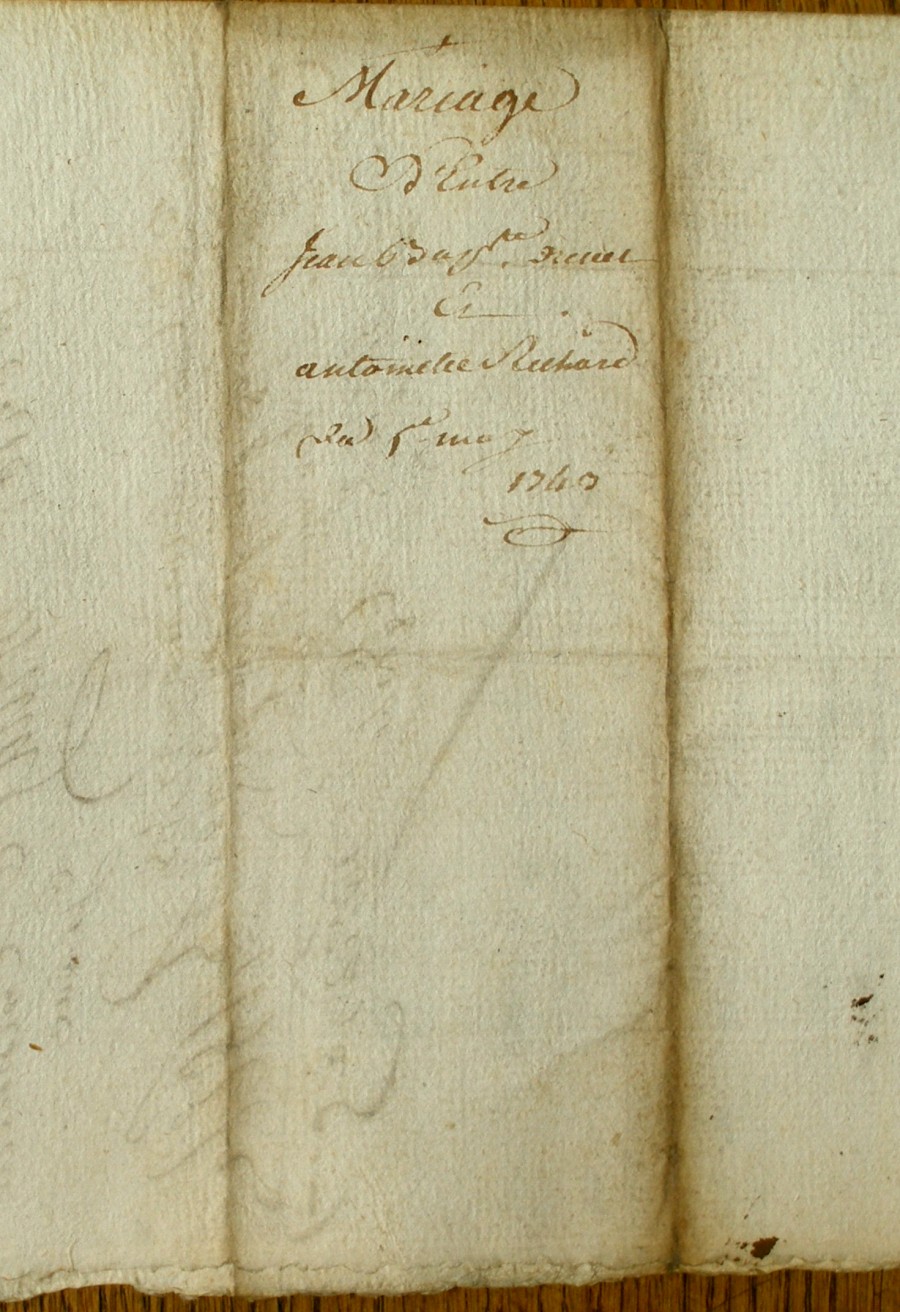 Mariage
d'Entre
Jean Bap.te
Et
antoinette Richard
Du 5e may
1743